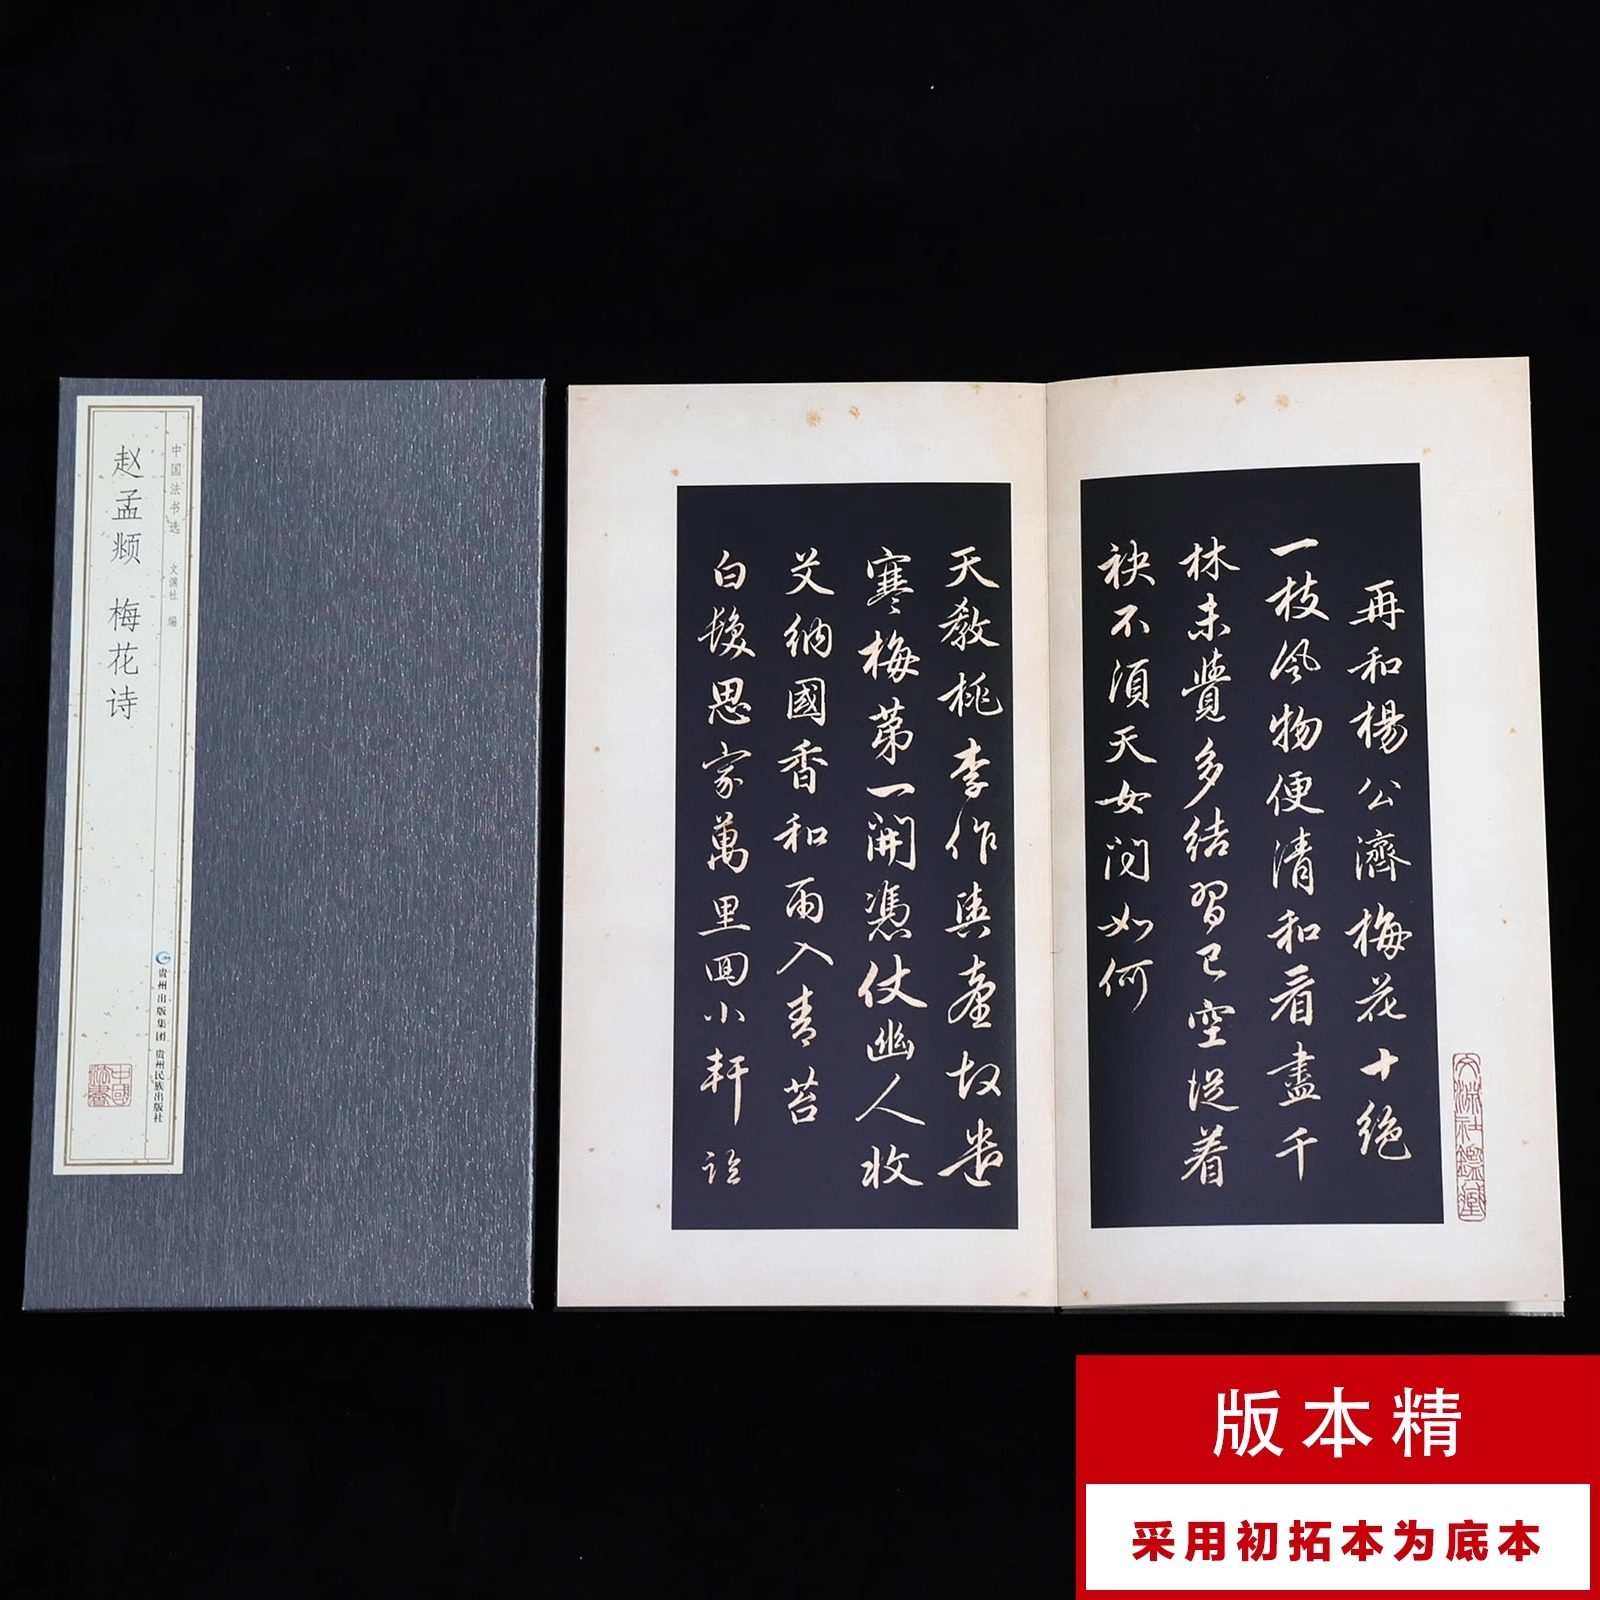 赵孟頫 梅花诗
中国法书选 文渊社 编
贵州出版集团 贵州民族出版社
中國法書
再和楊公濟梅花十绝
一枝风物便清和看盡千
林未覺多結習已空從着
袂不須天女问如何
文渊社鑑藏
天教桃李作輿臺故遣
寒梅第一開憑仗幽人收
艾納國香和雨入青苔
白髮思家萬里囬小軒
版本精
采用初拓本为底本